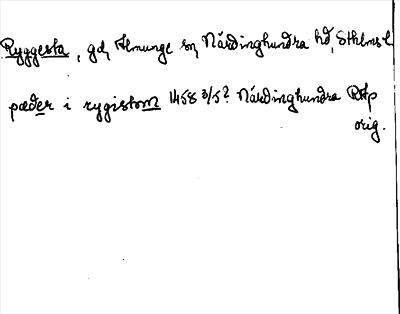 Ryggesta, gd, Almunge sn Närdinghundra hd, Sthlms l
pæder i rygistom 1458 3/5? Närdinghundra RAp
orig.